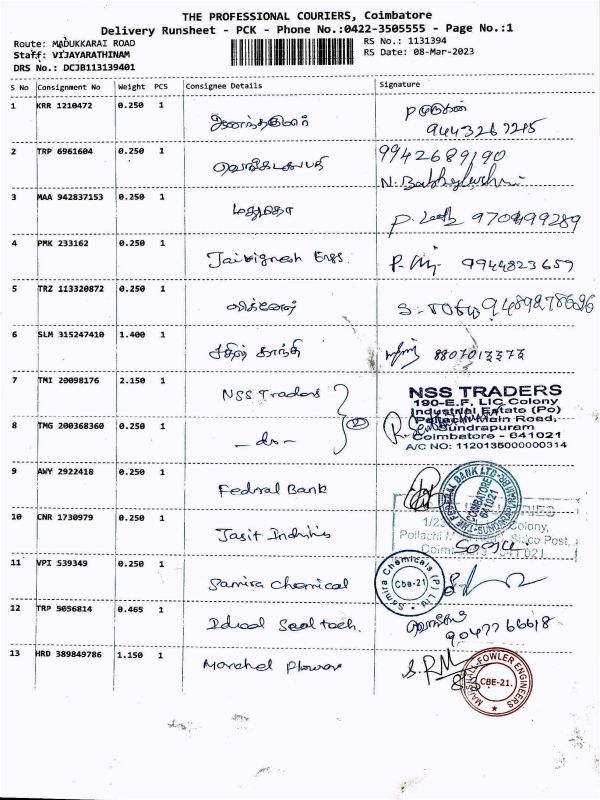 THE PROFESSIONAL COURIERS, Coimbatore
Delivery Runsheet - PCK - Phone No.:0422-3505555 - Page No.:1
Route: MADUKKARAI ROAD
Staff: VIJAYARATHINAM
DRS No.: DCJB113139401
RS No.: 1131394
RS Date: 08-Mar-2023
S No Consignment No Weight PCS Consignee Details Signature
1 KRR 1210472 0.250 1
9443267215
2 TRP 6961604 0.250 1 வெங்கடசுபதி 9942689190
3 MAA 942837153 0.250 1 9709499289
4 PMK 233162 0.250 1 Jaivignesh Engs. 9944823659
5 TRZ 113320872 0.250 1 விக்னேஷ் 9489278696
6 SLM 315247410 1.400 1 காந்தி
7 TMI 20098176 2.150 1 NSS Traders
8 TMG 200368360 0.250 1 - do - 2
NSS TRADERS
190-E.F. LIC Colony
Industrial Estate (Po)
Pollachi Main Road,
Sundrapuram
Coimbatore - 641021
A/C NO: 1120135000000314
9 AWY 2922418 0.250 1 Fedral Bank
THE FEDERAL BANK LTD
COIMBATORE
641021
10 CNR 1730979 0.250 1 Jasit
Colony,
Pollachi Sidco Post,
11 VPI 539349 0.250 1 Samira Chemical
Samira Chemicals (P) Ltd
Cbe-21
12 TRP 5056814 0.465 1 9047766618
13 HRD 389849786 1.150 1 S.RM
MARSHALL-FOWLER ENGINEERS
CBE-21.